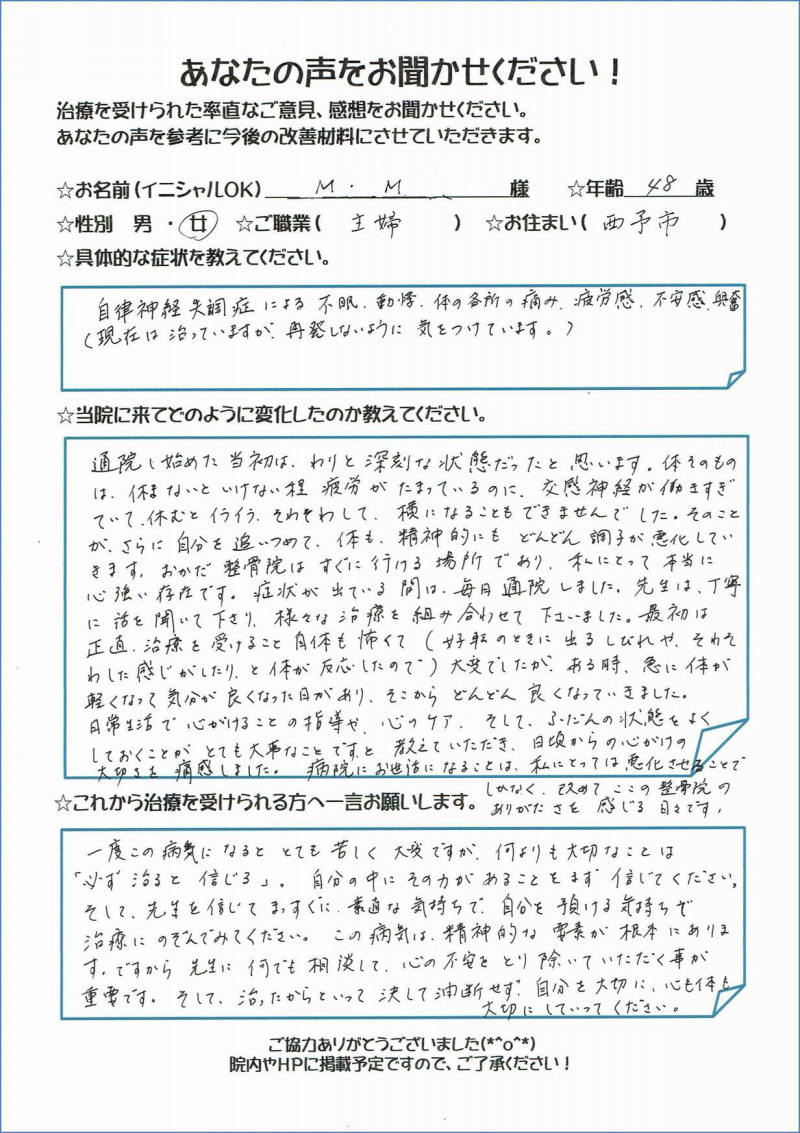 あなたの声をお聞かせください！
治療を受けられた率直なご意見、感想をお聞かせください。
あなたの声を参考に今後の改善材料にさせていただきます。
☆お名前(イニシャルOK) M・M 様 ☆年齢 48 歳
☆性別 男・女 ☆ご職業( 主婦 ) ☆お住まい( 西予市 )
☆具体的な症状を教えてください。
自律神経失調症による不眠、動悸、体の各所の痛み、疲労感、不安感、興奮
(現在は治っていますが、再発しないように気をつけています。)
☆当院に来てどのように変化したのか教えてください。
通院し始めた当初は、わりと深刻な状態だったと思います。体そのもの
は、休まないといけない程疲労がたまっているのに、交感神経が働きすぎ
ていて、休むとイライラ、そわそわして、横になることもできませんでした。そのこと
が、さらに自分を追いつめて、体も、精神的にもどんどん調子が悪化してい
きます。おかだ整骨院はすぐに行ける場所であり、私にとって本当に
心強い存在です。症状が出ている間は、毎日通院しました。先生は、丁寧
に話を聞いて下さり、様々な治療を組み合わせて下さいました。最初は
正直、治療を受けること自体も怖くて(好転のときに出るしびれや、そわそ
わした感じがしたり、と体が反応したので)大変でしたが、ある時、急に体が
軽くなって気分が良くなった日があり、そこからどんどん良くなっていきました。
日常生活で心がけることの指導や、心のケア、そして、ふだんの状態をよく
しておくことがとても大事なことですと教えていただき、日頃からの心がけの
大切さを痛感しました。病院にお世話になることは、私にとっては悪化させることで
しかなく、改めてここの整骨院の
ありがたさを感じる日々です。
☆これから治療を受けられる方へ一言お願いします。
一度この病気になるととても苦しく大変ですが、何よりも大切なことは
「必ず治ると信じる」。自分の中にその力があることをまず信じてください。
そして、先生を信じてまっすぐに、素直な気持ちで、自分を預ける気持ちで
治療にのぞんでみてください。この病気は、精神的な要素が根本にありま
す。ですから先生に何でも相談して、心の不安をとり除いていただく事が
重要です。そして、治ったからといって決して油断せず、自分を大切に、心も体も
大切にしていってください。
ご協力ありがとうございました(*^o^*)
院内やHPに掲載予定ですので、ご了承ください！